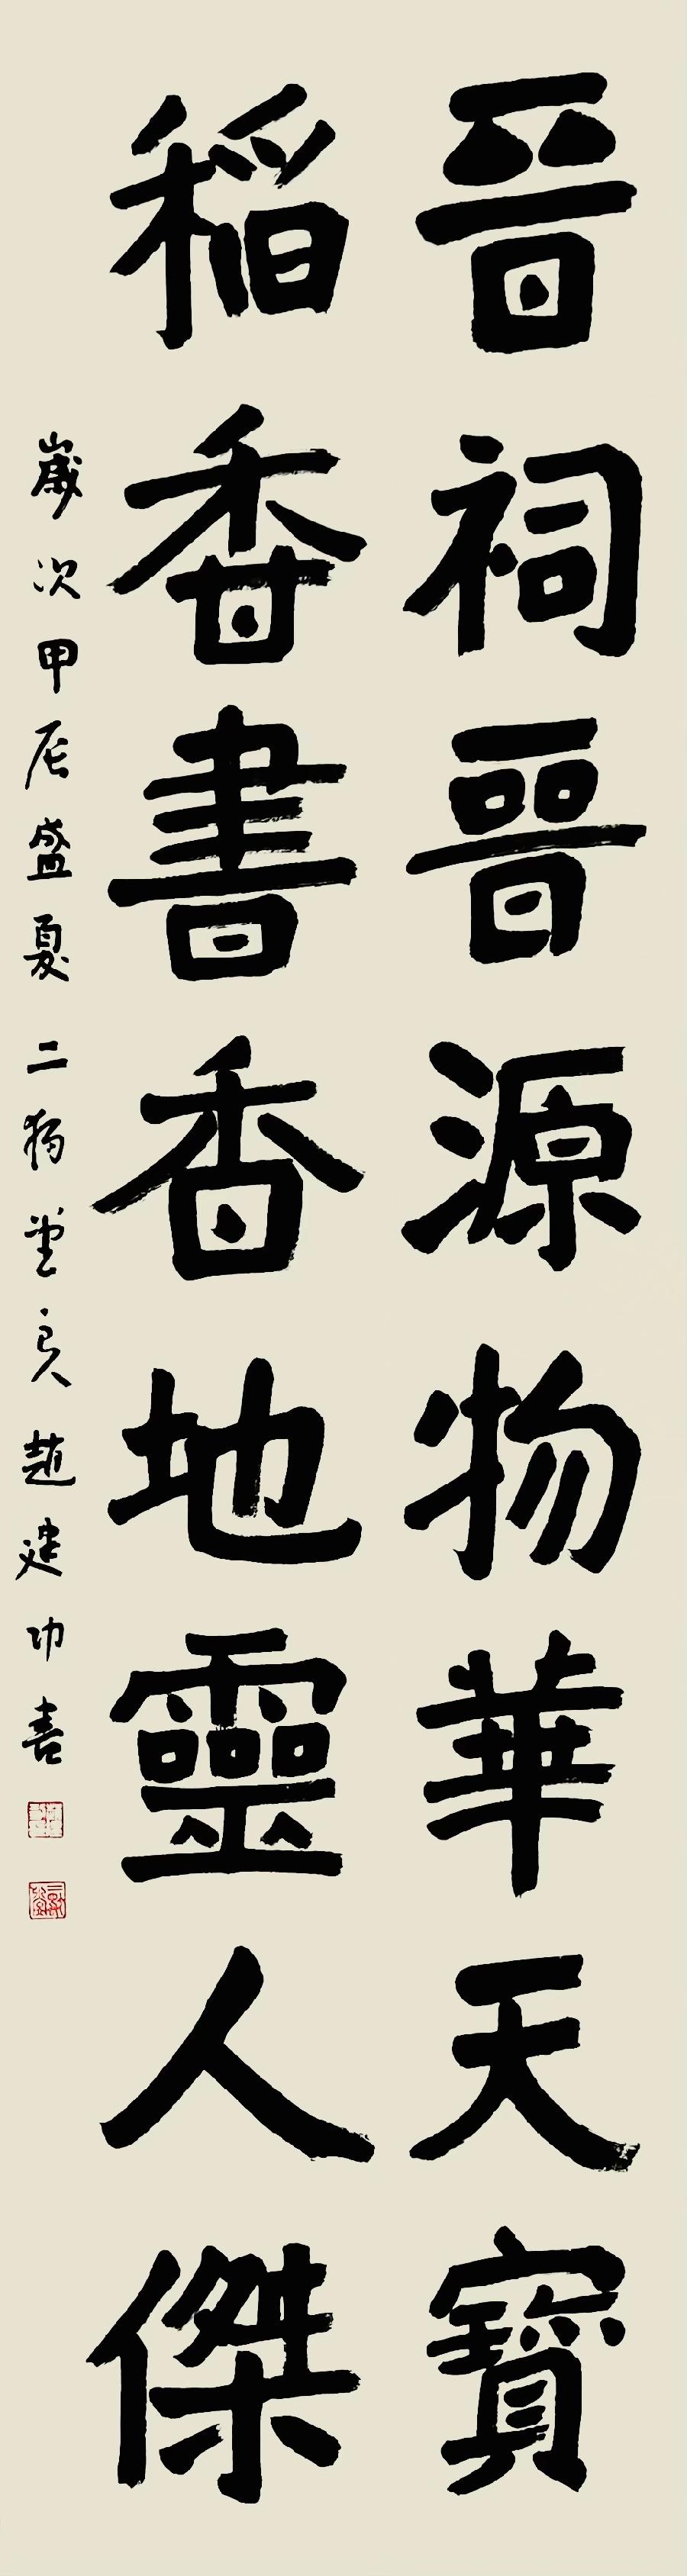 晉祠晉源物華天寶
稻香書香地靈人傑
歲次甲辰盛夏二獨堂主人趙建功書